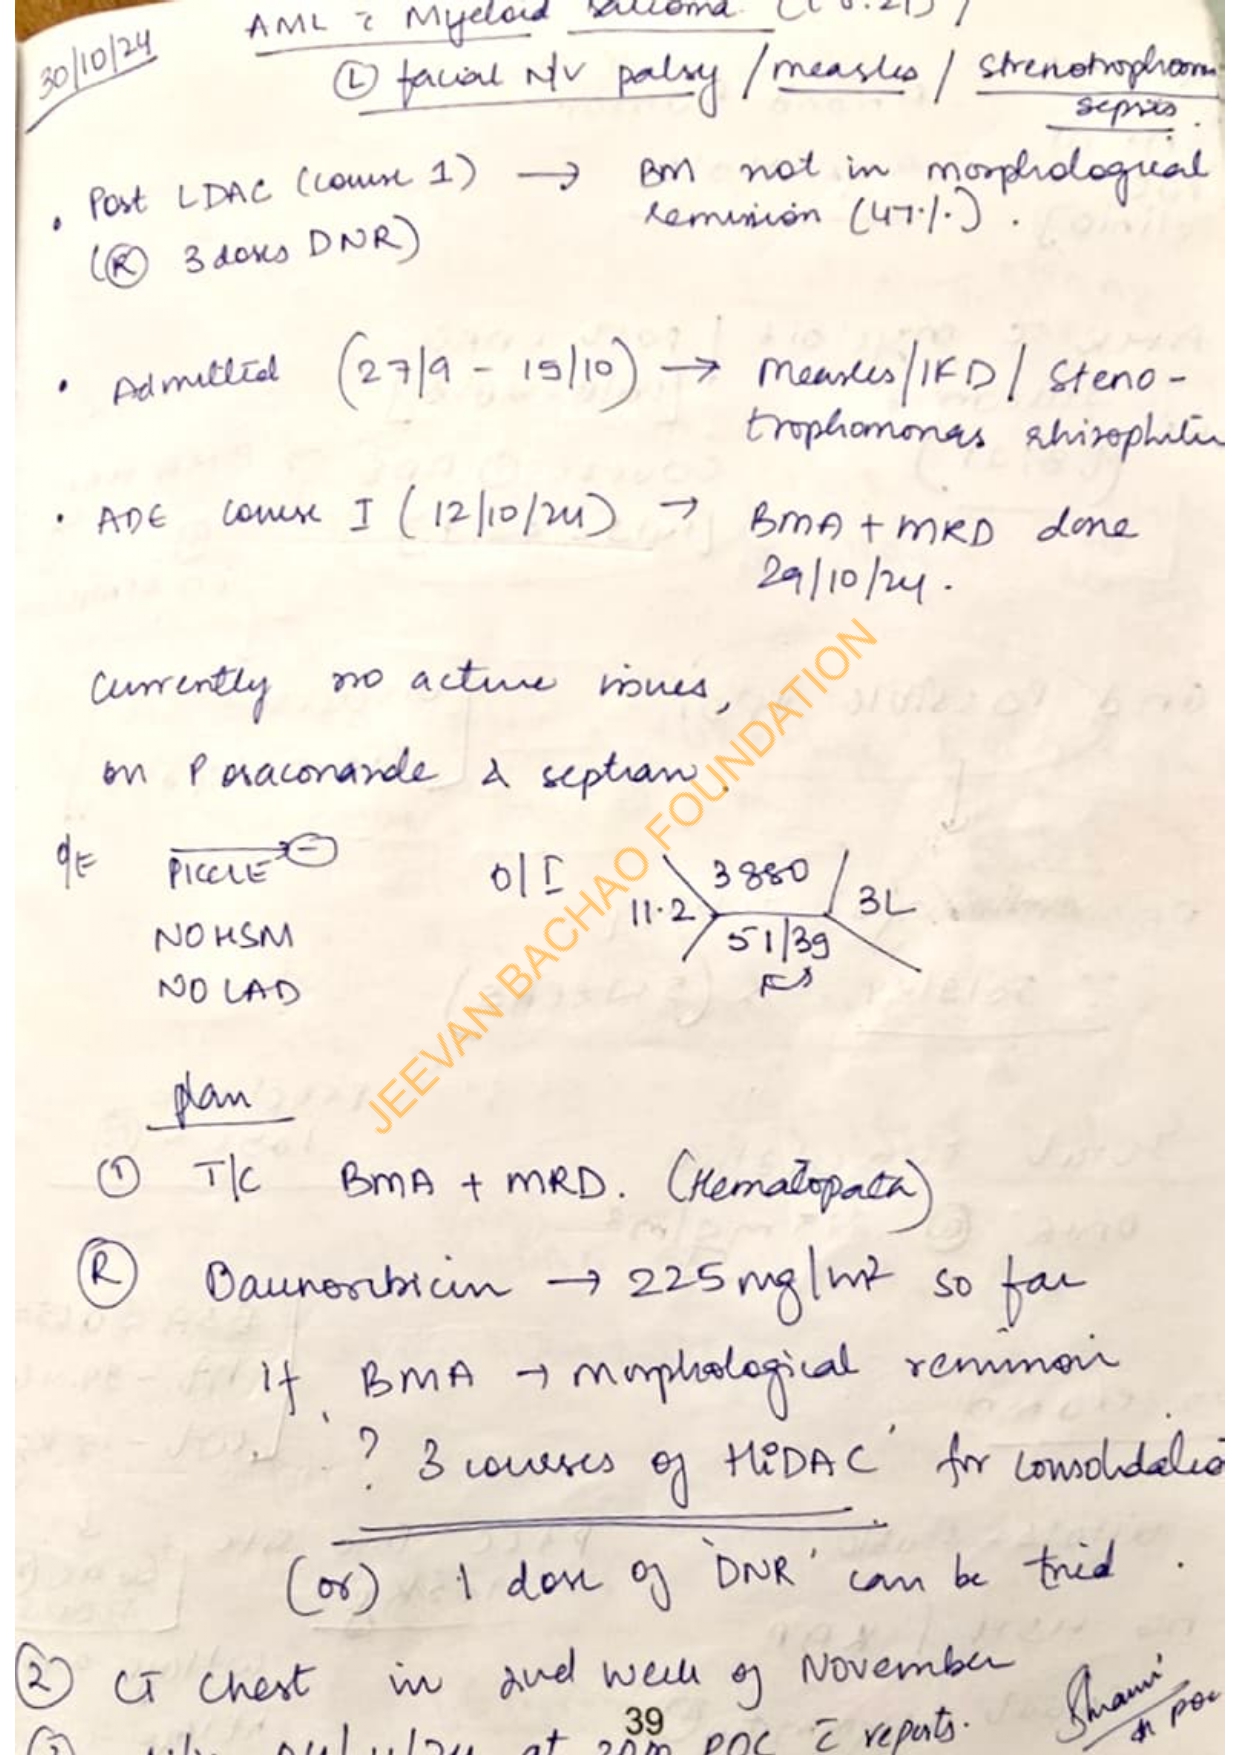 30/10/24
AML c̄ Myeloid Sarcoma (t 8:21) /
Ⓛ facial N/V palsy / measles / Strenotrophomo
sepsis.
• Post LDAC (Course 1) → BM not in morphological
remission (47%).
(Ⓡ 3 doses DNR)
• Admitted (27/9 - 19/10) → Measles/IFD/ Steno-
trophomonas rhizophilia
• ADE course I (12/10/24) → BMA + MRD done
29/10/24.
Currently no active issues,
on Posaconazole & septran.
O/E PICCLE → ⊖
NO HSM
NO LAD
O/I 11.2 3880 3L
51/39
Plan
① T/C BMA + MRD. (Hematopath)
Ⓡ Daunorubicin → 225 mg/m² so far
If BMA → morphological remission
? 3 courses of 'HiDAC' for consolidatio
(or) 1 dose of 'DNR' can be tried.
② CT Chest in 2nd week of November
at POC c̄ reports.
POC
39
JEEVAN BACHAO FOUNDATION